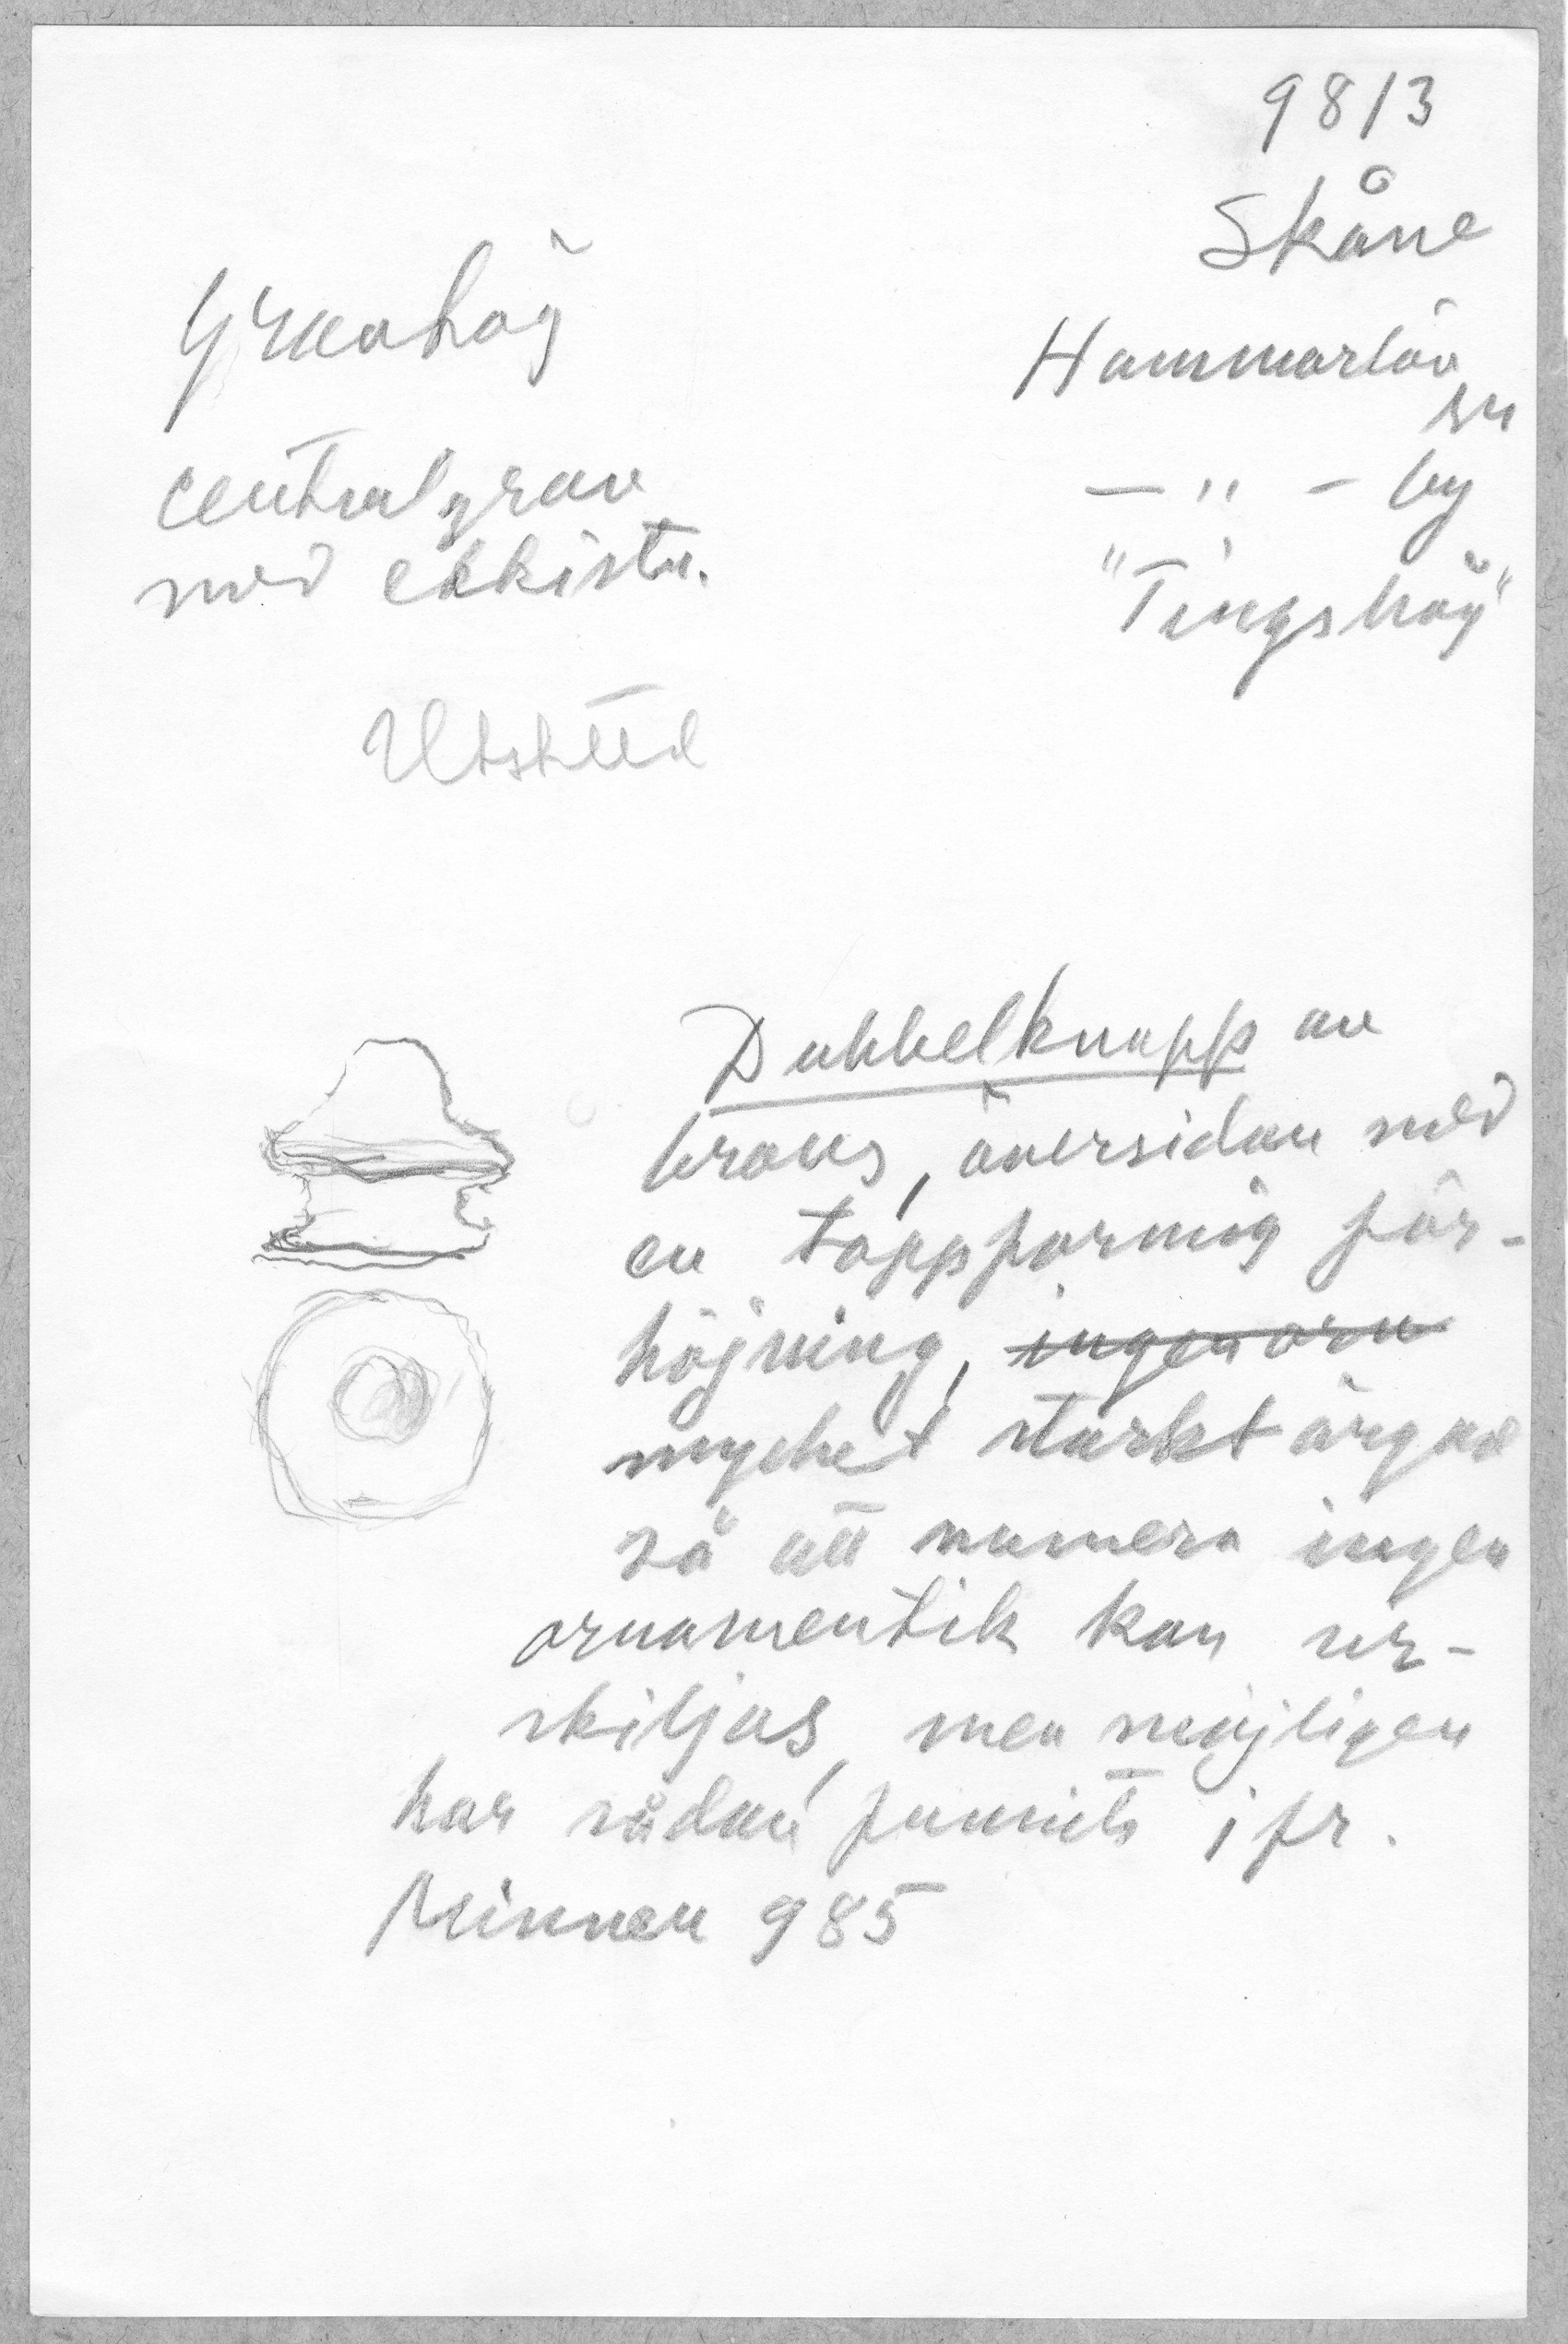 9813
Skåne
Hammarlöv
sn
— " — by
"Tingshög"
Gravhög
centralgrav
med ekkista.
Utställd
Dubbelknapp av
brons, översidan med
en tappformig för-
höjning, ingen orn
mycket starkt ärgad
så att numera ingen
ornamentik kan ur-
skiljas, men möjligen
har sådan funnits jfr.
Minnen 985